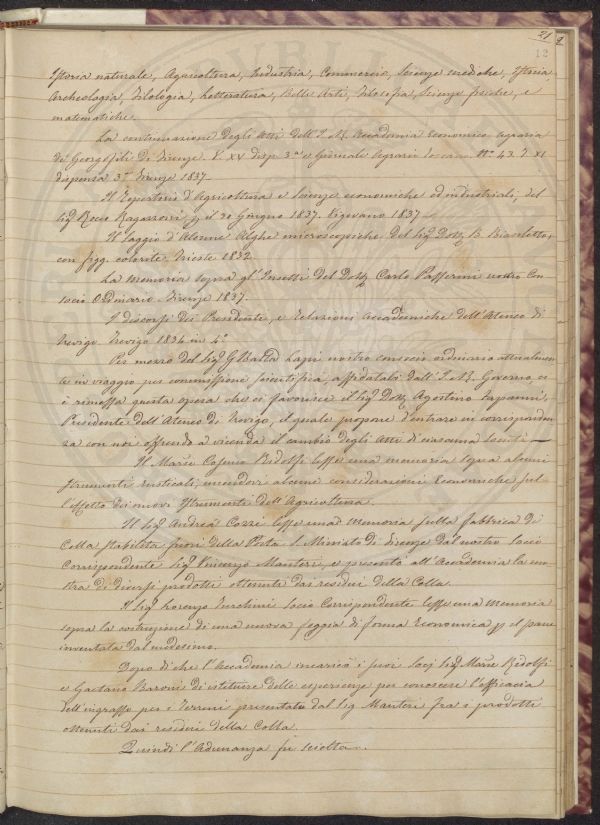 21
9
12
Istoria naturale, Agricoltura, Industria, Commercio, Scienze mediche, Storia
Archeologia, Filologia, Letteratura, Belle Arti, Filosofia, Scienze fisiche, e
matematiche.
La continuazione degli Atti dell'I. R. Accademia Economico agraria
dei Georgofili di Firenze. V. XV disp. 3a e Giornale Agrario Toscano No. 43. T XI
dispensa 3a Firenze 1837.
Il Repertorio d'Agricoltura e Scienze economiche ed industriali, del
Sig Rocco Ragazzoni, 20 Giugno 1837. Vigevano 1837
Il Saggio d'Alcune Alghe microscopiche del Sig Dott B. Biasoletto,
con figg. colorate Trieste 1832.
La memoria sopra gl'Insetti del Dott Carlo Passerini nostro Con
socio Ordinario Firenze 1837.
I discorsi dei Presidente, e Relazioni Accademiche dell'Ateneo di
Trevigo. Trevigo 1834 in 4o
Per mezzo del Sig GBatta Lapi nostro consocio ordinario attualmen
te in viaggio per commissione scientifica affidatali dall'I. R. Governo, ci
è rimessa questa opera che ci favorisce il Sig Dott Agostino
Presidente dell'Ateneo di Trevigo, il quale propone d'entrare in corrisponden
za con noi offrendo a vicenda il cambio degli Atti di ciascuna Società
Il March Cosimo Ridolfi lesse una memoria sopra alcuni
strumenti rusticali, unendovi alcune considerazioni Economiche sul
l'effetto dei nuovi Istrumenti dell'Agricoltura.
Il Sig Andrea Cozzi lesse una Memoria sulla fabbrica di
Colla stabilita fuori della Porta S. Miniato di Firenze dal nostro Socio
Corrispondente Sig Vincenzo Manteri, e presentò all'Accademia la mo
stra di diversi prodotti ottenuti dai residui della Colla.
Il Sig Lorenzo Turchini Socio Corrispondente lesse una Memoria
sopra la costruzione di una nuova foggia di forma Economica il pane
inventata dal medesimo.
Dopo di che l'Accademia incaricò i suoi Socj Sig March Ridolfi
e Gaetano Baroni di istituire delle esperienze per conoscere l'efficacia
dell'ingrasso per i Terreni presentato dal Sig Manteri fra i prodotti
ottenuti dai residui della Colla.
Quindi l'Adunanza fu sciolta.